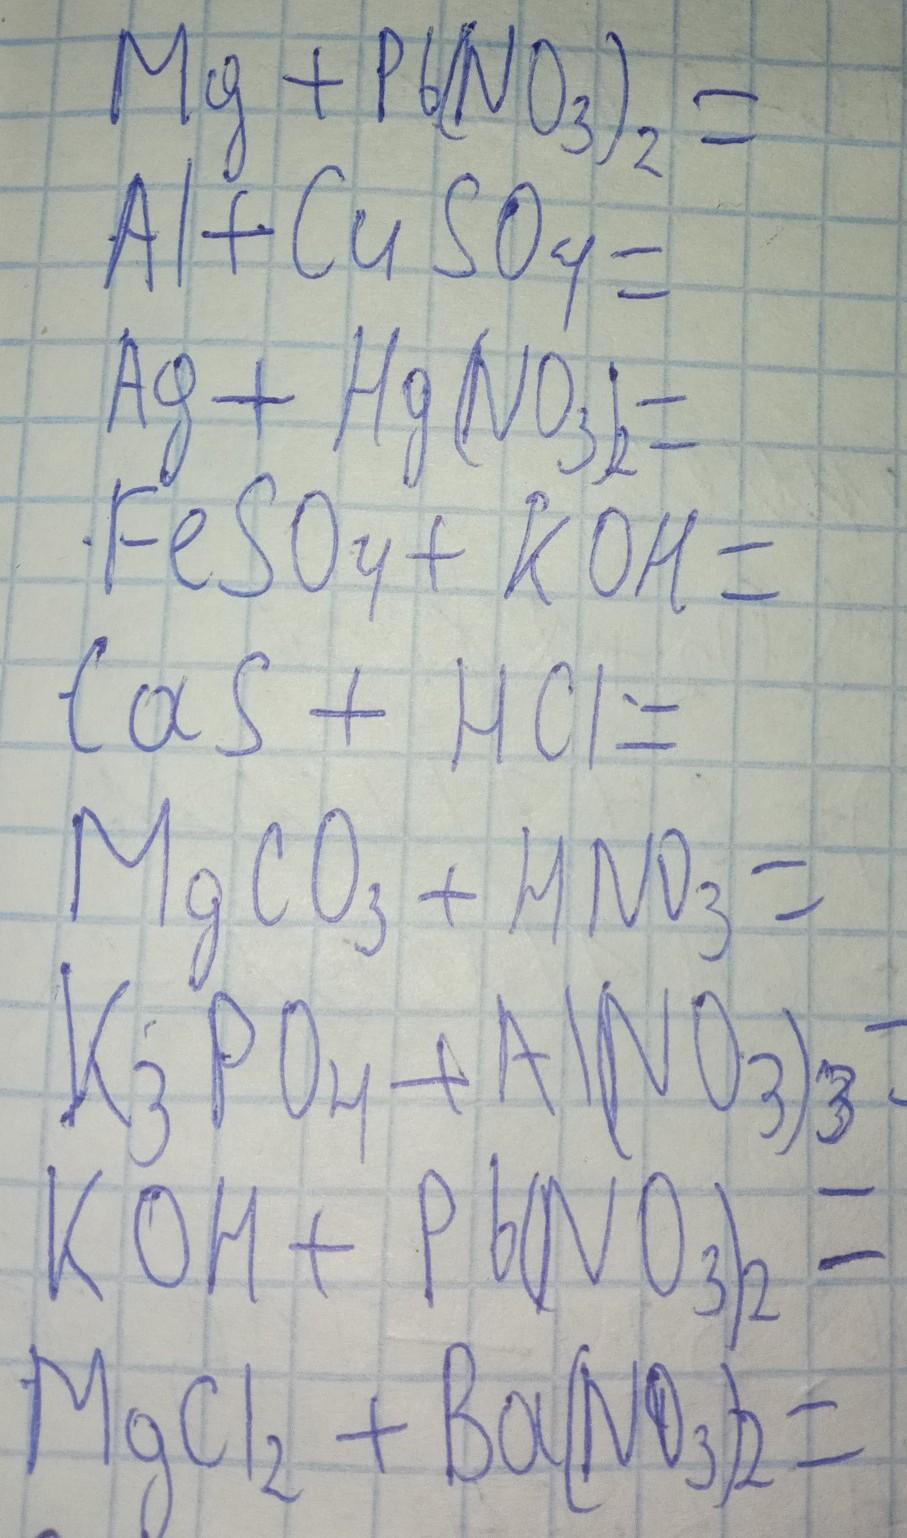 Mg + Pb(NO₃)₂ =
Al + CuSO₄ =
Ag + Hg(NO₃)₂ =
FeSO₄ + KOH =
CaS + HCl =
MgCO₃ + HNO₃ =
K₃PO₄ + Al(NO₃)₃ =
KOH + Pb(NO₃)₂ =
MgCl₂ + Ba(NO₃)₂ =